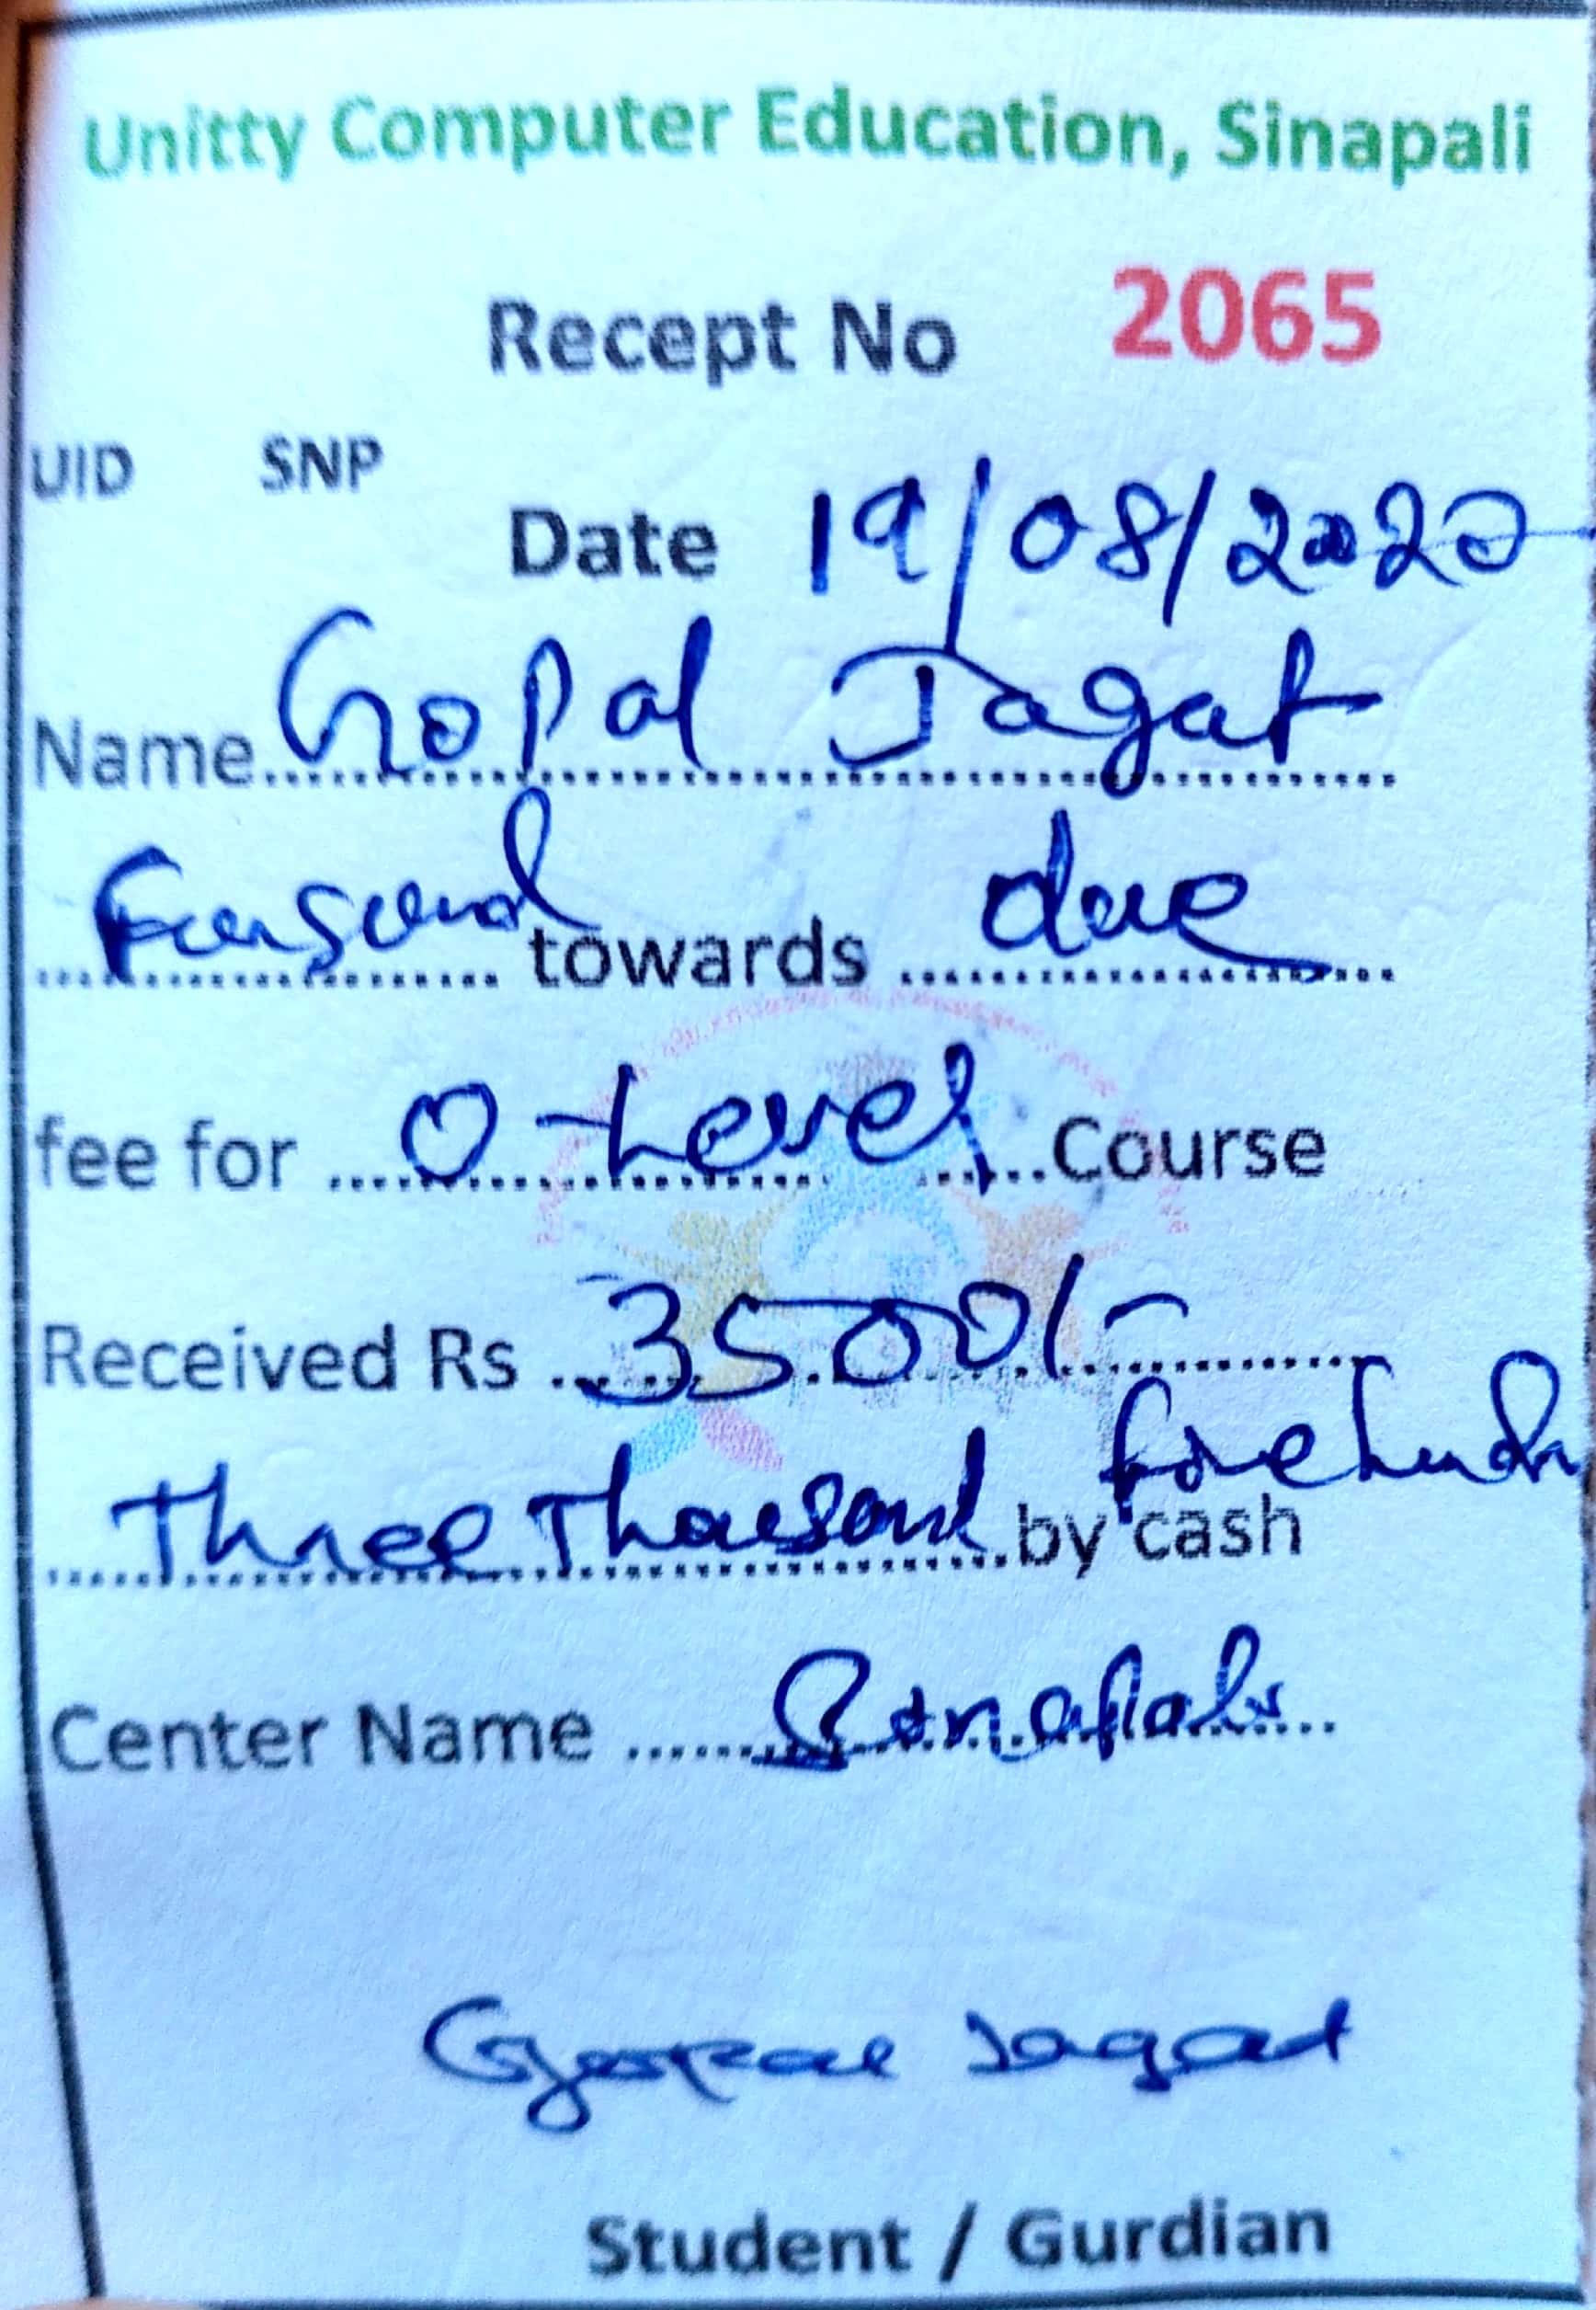 Unitty Computer Education, Sinapali
Recept No 2065
UID SNP
Date 19/08/2020
Name Gopal Jagat
towards due
fee for O-Level Course
Received Rs 3500/-
Three Thousand by cash
Center Name Sinapali
Gopal Jagat
Student / Gurdian